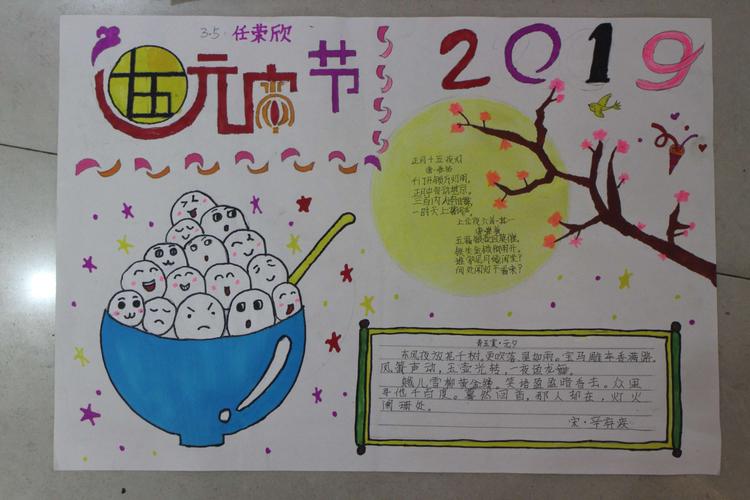 3.5. 任荣欣
十五元宵节
2019
正月十五夜灯
唐·张祜
千门开锁万灯明,
正月中旬动帝京。
三百内人连袖舞,
一时天上著词声。
上元夜六首·其一
唐·崔液
玉漏银壶且莫催,
铁关金锁彻明开。
谁家见月能闲坐?
何处闻灯不看来?
青玉案·元夕
东风夜放花千树,更吹落、星如雨。宝马雕车香满路。
凤箫声动,玉壶光转,一夜鱼龙舞。
蛾儿雪柳黄金缕。笑语盈盈暗香去。众里
寻他千百度。蓦然回首,那人却在,灯火
阑珊处。
宋·辛弃疾